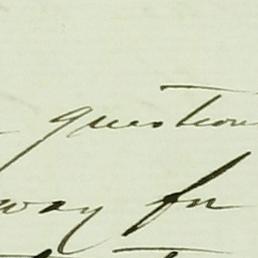 question
way for